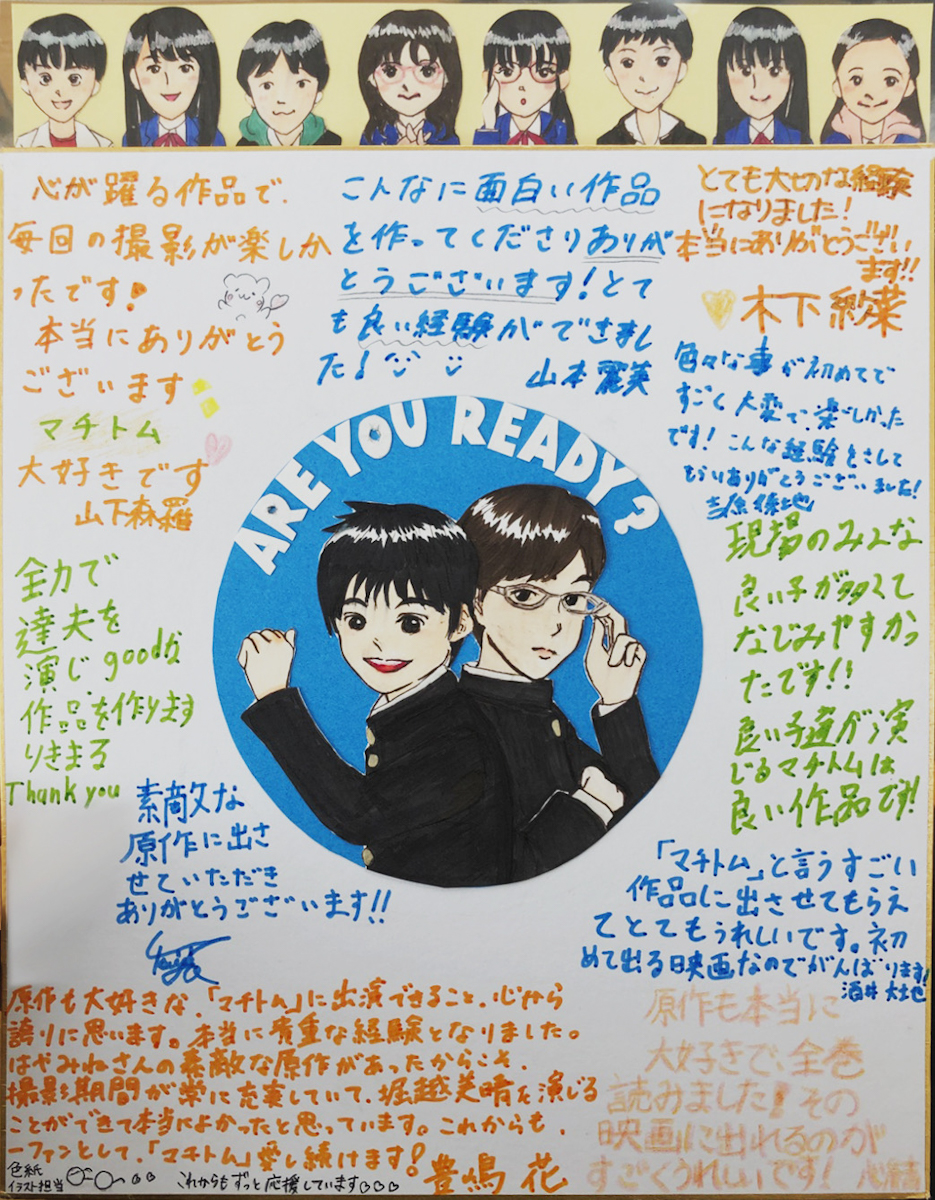 心が躍る作品で、
毎回の撮影が楽しか
ったです!
本当にありがとう
ございます
マチトム
大好きです
山下森羅
こんなに面白い作品
を作ってくださりありが
とうございます!とて
も良い経験ができまし
た!
山本麗英
とても大切な経験
になりました!
本当にありがとうござい
ます!!
木下紗菜
色々な事が初めてで
すごく大変で、楽しかった
です!こんな経験をさして
もらいありがとうございました!
ARE YOU READY?
現場のみんな
良い子が多くて
なじみやすかっ
たです!!
良い子達が演
じるマチトムは
良い作品です!
全力で
達夫を
演じ、goodな
作品を作ります
りきまる
Thank you
素敵な
原作に出さ
せていただき
ありがとうございます!!
「マチトム」と言うすごい
作品に出させてもらえ
てとてもうれしいです。初
めて出る映画なのでがんばります!
酒井 大地
原作も大好きな、「マチトム」に出演できること、心から
誇りに思います。本当に貴重な経験となりました。
はやみねさんの素敵な原作があったからこそ、
撮影期間が常に充実していて、堀越美晴を演じる
ことができて本当によかったと思っています。これからも、
一ファンとして、「マチトム」愛し続けます!
豊嶋 花
原作も本当に
大好きで、全巻
読みました!その
映画に出れるのが
すごくうれしいです!
色紙
イラスト担当
これからもずっと応援しています